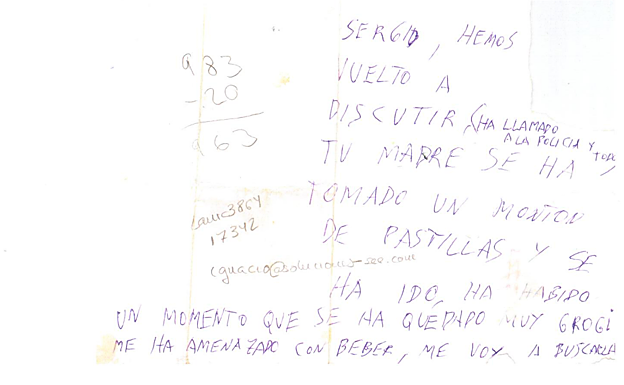 SERGIO, HEMOS
VUELTO A
DISCUTIR, (HA LLAMADO
A LA POLICIA Y TODO)
TU MADRE SE HA
TOMADO UN MONTON
DE PASTILLAS Y SE
HA IDO, HA HABIDO
UN MOMENTO QUE SE HA QUEDADO MUY GROGI
ME HA AMENAZADO CON BEBER, ME VOY A BUSCARLA
983
-20
963
3864
17342